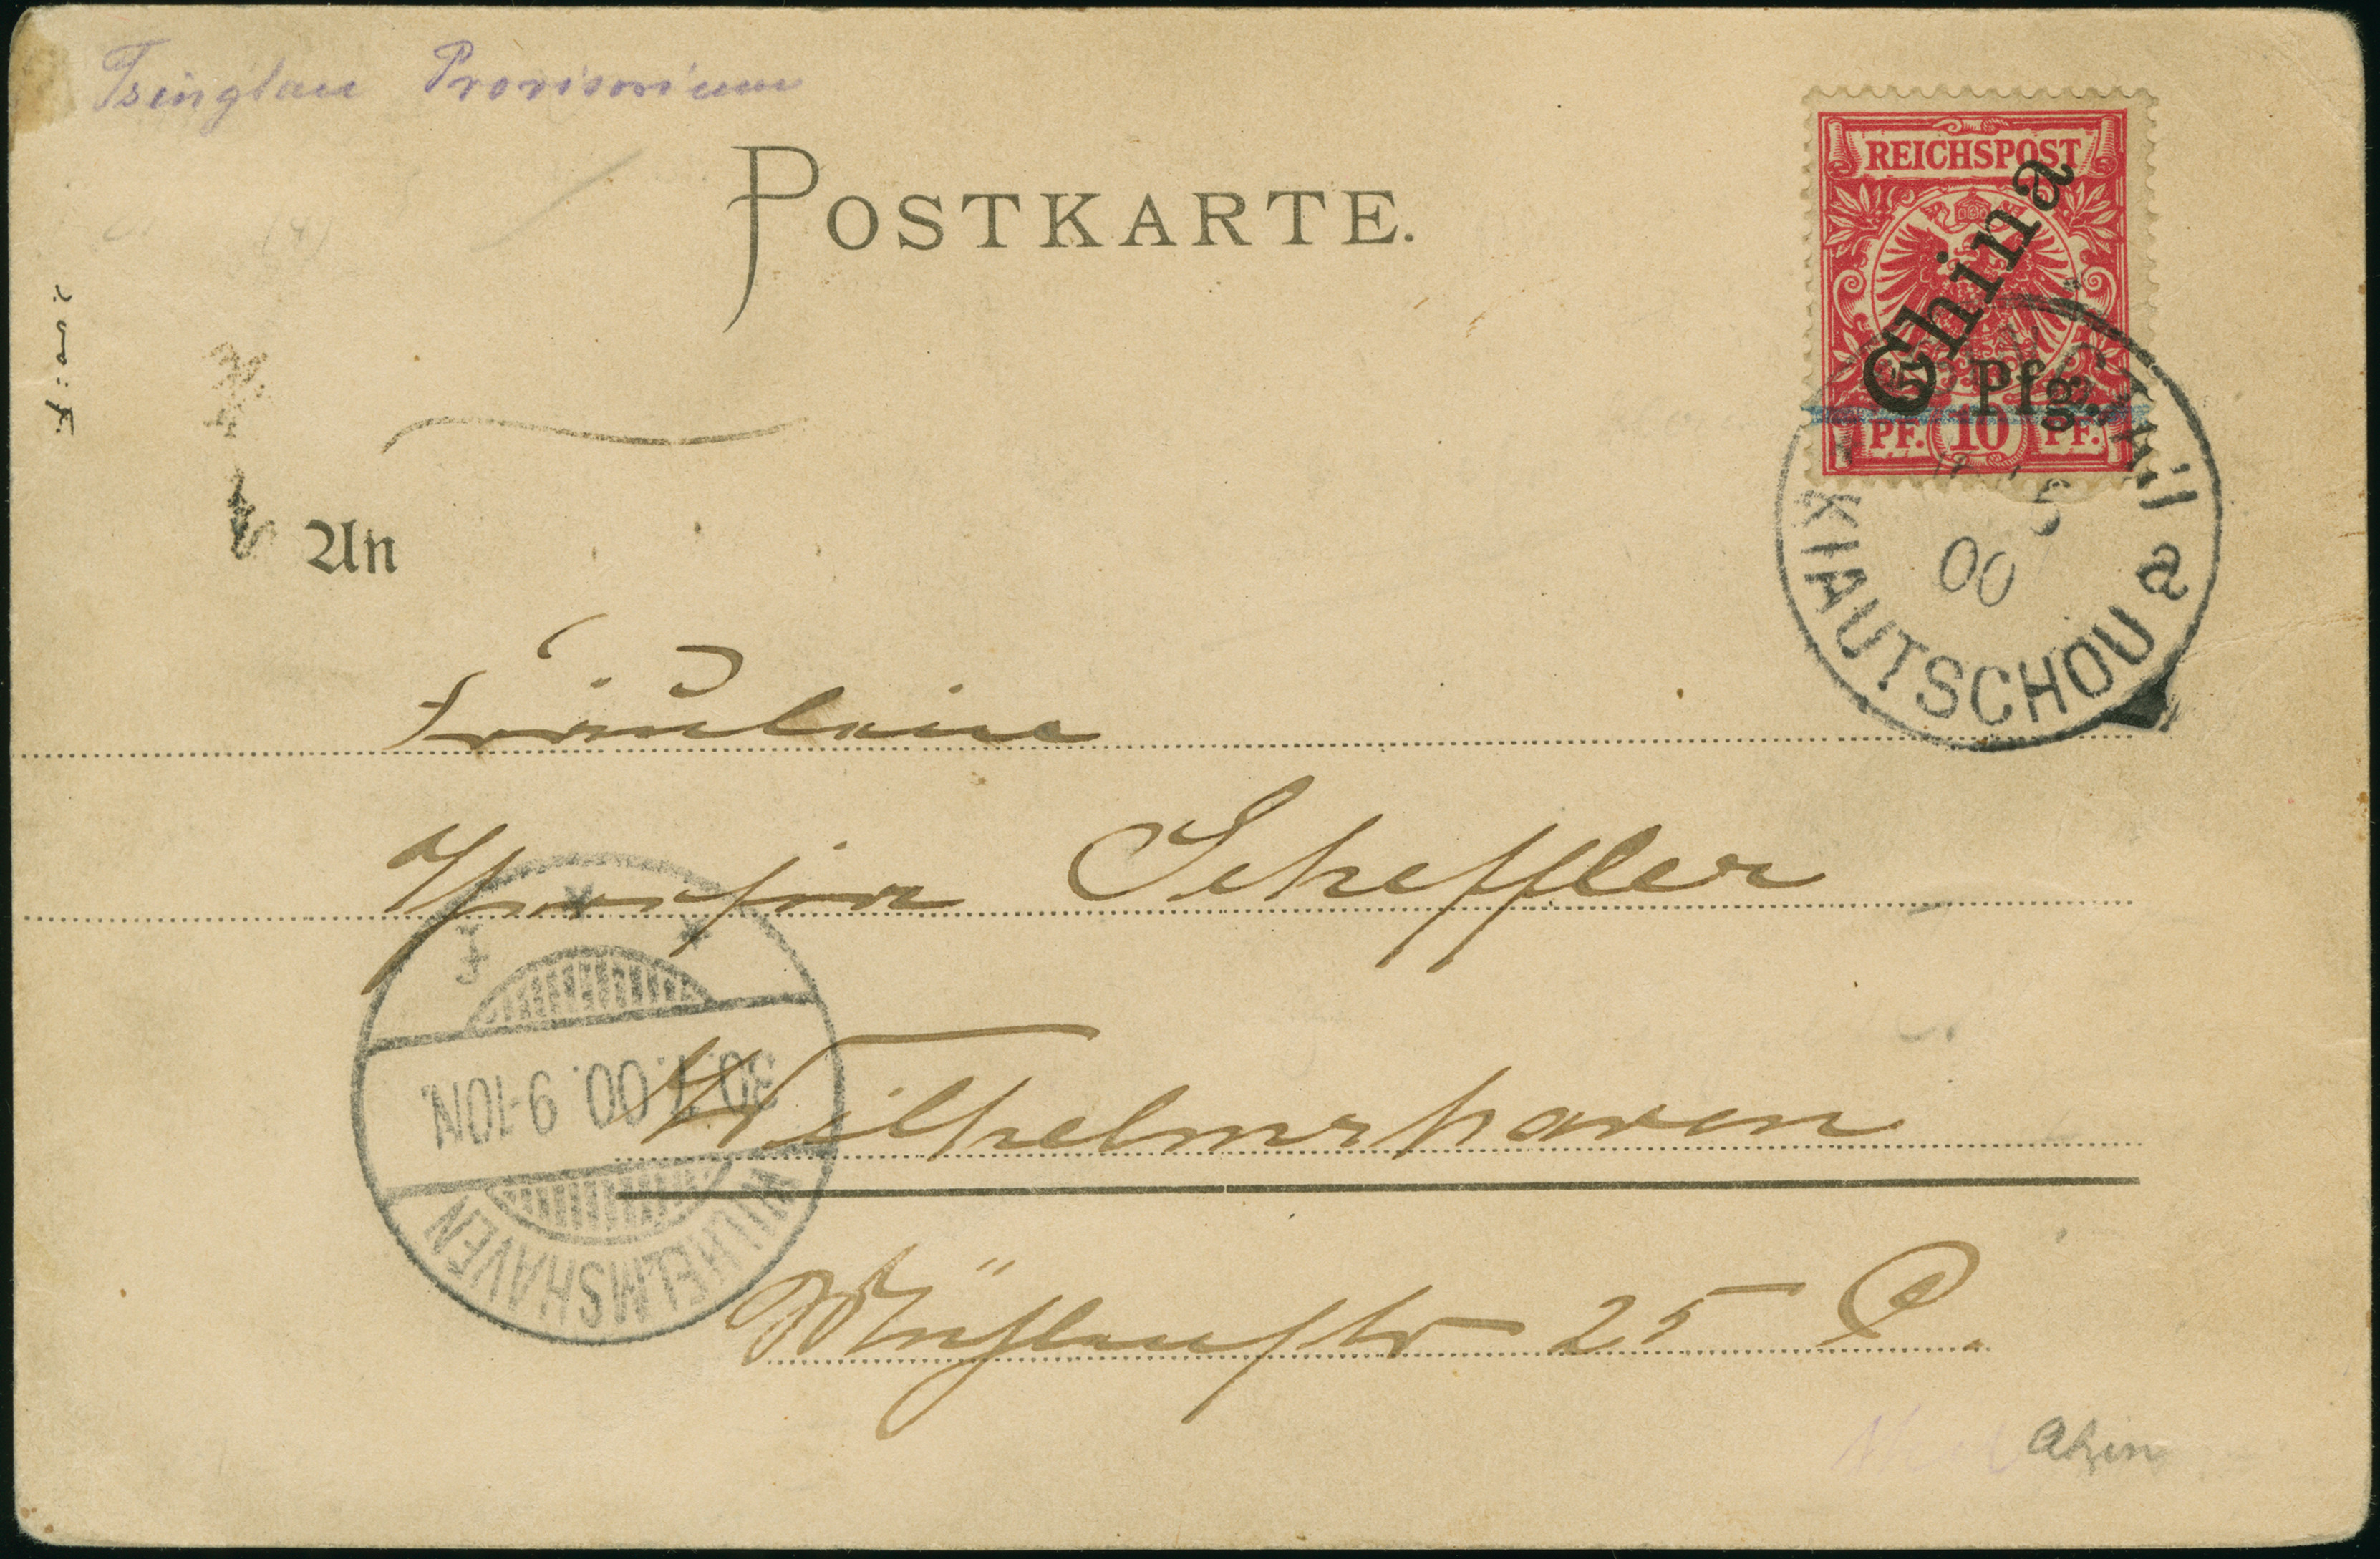 Tsingtau Provisorium
POSTKARTE.
REICHSPOST
China
5 Pfg.
PF. 10 PF.
5
00
KIAUTSCHOU
a
An
Fräulein
Scheffler
Wilhelmshaven
25 P.
30.7.00. 9-10N.
WILHELMSHAVEN